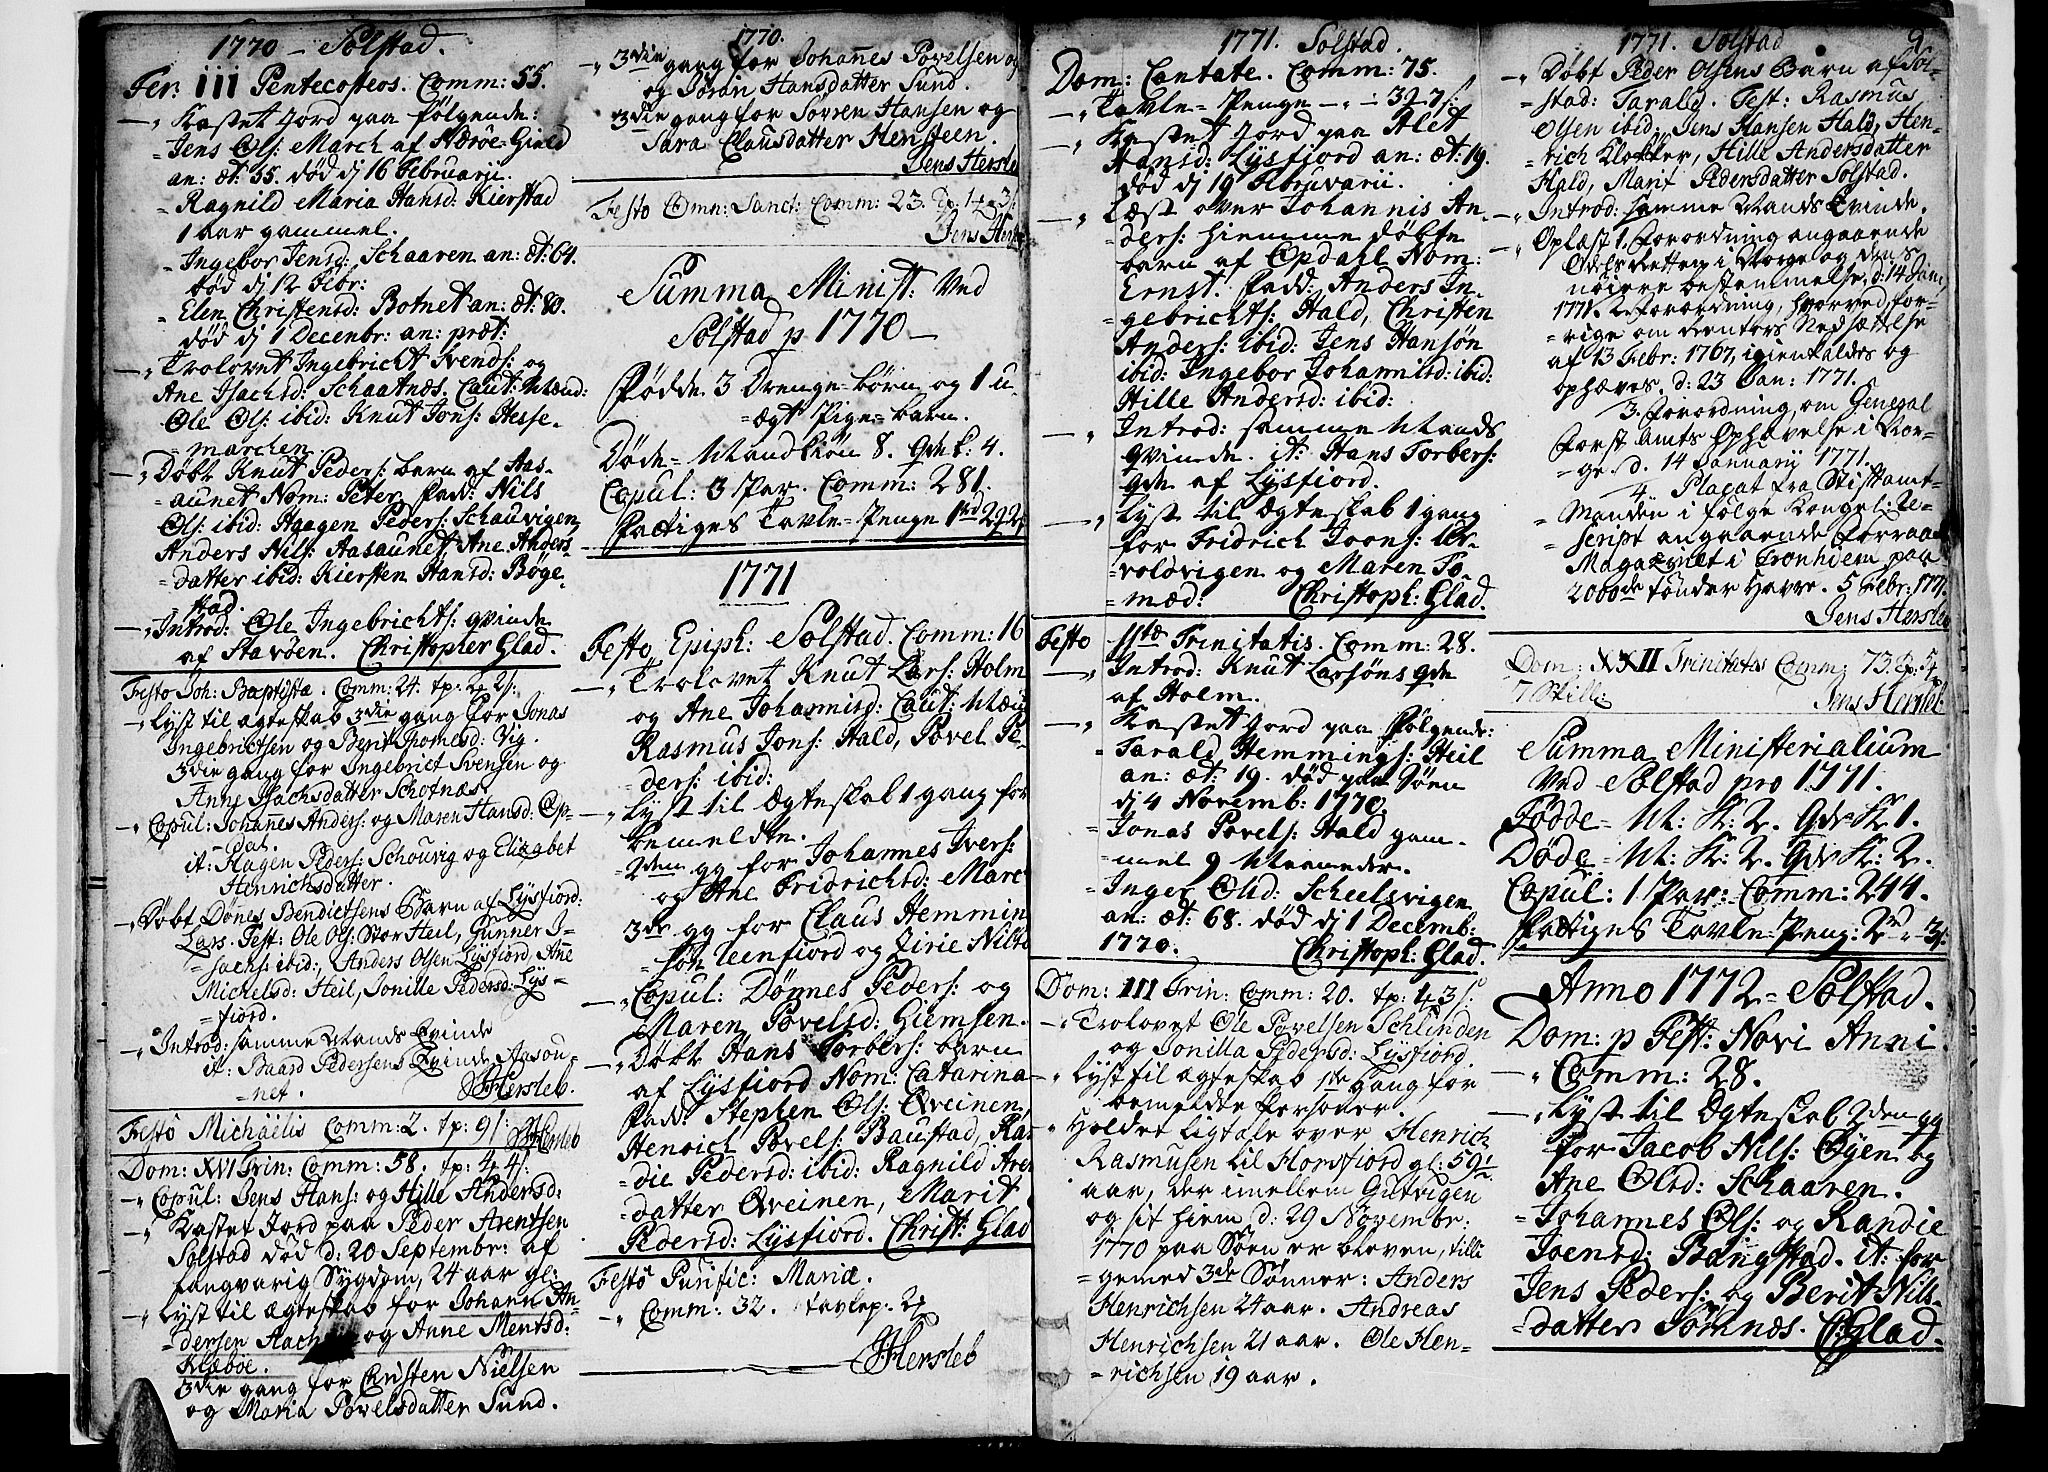 1770 – Solstad.
Fer: III Pentecostes. Comm: 55.
Kastet Jord paa følgende:
Jens Ols: March af Nærøe-Gield
an: æt: 55. død dj 16 Februarii.
Ragnild Maria Hansd: Kierstad
1 aar gammel.
Ingebor Jensd: Schaaren an: æt: 64.
død dj 12 Febr:
Elen Christensd: Botnet an: æt: 80.
død dj 1 Decembr: an: præt:
Trolovet Ingebricht Svends: og
Ane Isachsd: Schaatnæs. Caut: Mænd:
Ole Ols: ibid: Knut Jons: Hesse-
marchen.
Døbt Knut Peders: barn af Aas-
aunet Nom: Peter, Fadd: Nils
Ols: ibid: Haagen Peders: Schauvigen
Anders Nils: Aasaunet, Ane Anders
datter ibid: Kiersten Hansd: Bøge-
stad.
Introd: Ole Ingebrichts: qvinde
af Stavøen. Christopher Glad.
Festo Joh: Baptista. Comm: 24. tp: 2 2/:
Lyst til ægteskab 3die gang for Jonas
Ingebrictsen og Berit Thomesd: Vig.
3die gang for Ingebrict Svensen og
Anne Isachsdatter Schotnæs.
Copul: Johannes Anders: og Maren Hansd: Op-
dal.
it: Hagen Peders: Schouvig og Elizabet
Henrichsdatter.
Døbt Dønes Bendictsens Barn af Lysfiord:
Lars. Test: Ole Ols: Stor Heil, Gunner I-
sachs: ibid:, Anders Olsen Lysfiord, Ane
Michelsd: Heil, Jonille Pedersd: Lys-
fiord.
Introd: samme Mands Qvinde
it: Baard Pedersens Qvinde Aasou-
net. JHersleb.
Festo Michaëlis Comm: 2. tp: 9/: JHersleb
Dom: XVI Trin: Comm: 58. tp: 4 4/:
Copul: Jens Hans: og Hille Andersd:
Kastet Jord paa Peder Arentsen
Solstad død d: 20 Septembr: af
langvarig Sygdom, 24 aar gl:
Lyst til ægteskab for Johann An-
dersen og Anne Mentsd:
Klæboe.
3die gang for Christen Nielsen
og Maria Povelsdatter Sund.
1770.
3die gang for Johannes Povelsen og
og Jøran Hansdatter Sund.
3die gang for Søvren Hansen og
Sara Clausdatter Hensteen.
Jens Hersle
Festo Omn: Sanct: Comm: 23. Tp: 1 4 3/:
Jens Hers
Summa Minist: Ved
Solstad p 1770 –
Fødde 3 Drenge-børn og 1 u-
ægt Pige-barn.
Døde-Mandkiøn 8. Qvdk: 4.
Copul: 3 Par. Comm: 281.
Fattiges Tavle-Penge 1rd 2 2 2/
1771
Festo Epiph: Solstad. Comm: 16
Trolovet Knut Lars: Holm
og Ane Johannisd: Caut: Mæn
Rasmus Jons: Hald, Povel Pe-
ders: ibid:
Lyst til Ægteskab 1 gang for
bemeldte.
2den gg for Johannes Ivers:
og Ane Fridrichsd: Marc
3die gg for Claus Hemmin
søn Uenfiord og Zirie Nilsd
Copul: Dønnes Peders: og
Maren Povelsd: Giemsen.
Døbt Hans Torbers: barn
af Lysfiord Nom: Catarina
Fad: Stephen Ols: Qveinen,
Henrich Povels: Baustad, Ran
die Pedersd: ibid: Ragnild Aren
datter Qveinen, Marit
Pedersd: Lysfiord. Christ: Glad
Festo Purific: Mariæ.
Comm: 32. tavlep: 2
JHersleb
1771. Solstad.
Dom: Cantate. Comm: 75.
Tavle-Penge – 3 2 7/:
Kastet Jord paa Alet
Hansd: Lysfiord an: æt: 19.
død dj 19 Februvarii.
Læst over Johannis An-
ders: hiemme døbte
barn af Opdahl Nom:
Ernst. Fadd: Anders In-
gebrichts: Hald, Christen
Anders: ibid: Jens Hansøn
ibid: Ingebor Johannisd: ibid:
Hille Andersd: ibid:
Introd: samme Mands
qvinde. it: Hans Torbers:
qde af Lysfiord.
Lyst til Ægteskab 1 gang
for Fridrich Joons: Ur-
voldvigen og Maren To-
mæd: Christoph: Glad.
Festo SStæ Trinitatis. Comm: 28.
Introd: Knut Larsøns qde
af Holm.
Kastet Jord paa følgende:
Tarald Hemmings: Heil
an: æt: 19. død paa Søen
dj 4 Novemb: 1770.
Jonas Povels: Hald gam-
mel 9 Maaneder.
Inger Olsd: Scheelsvigen
an: æt: 68. død dj 1 Decemb:
1770. Christoph: Glad.
Dom: III Trin: Comm: 20. tp: 1 4 3/:
Trolovet Ole Povelsen Schlinden
og Jonilla Pedersd: Lysfiord
Lyst til ægteskab 1ste gang for
bemeldte Personer.
Holdet Ligtale over Henrich
Rasmusen til Horsfiord gl: 59½
aar, der imellem Gutvigen
og sit hiem d: 29 Novembr:
1770 paa Søen er bleven, tilli
gemed 3de Sønner: Anders
Henrichsen 24 aar. Andreas
Henrichsen 21 aar. Ole Hen-
richsen 19 aar.
1771. Solstad 9.
Døbt Peder Olsens Barn af Sol-
stad: Tarald. Test: Rasmus
Olsen ibid: Jens Hansen Hald, Hen-
rich Klokker, Hille Andersdatter
Hald, Marit Pedersdatter Solstad.
Introd: samme Mands Qvinde.
Oplæst 1. Forordning angaaende
Odels Retten i Norge og dens
nøiere bestemmelse, d: 14 Jan:
1771. 2. Forordning, hvorved for-
rige om Renters Nedsættelse
af 13 Febr: 1767, igienkaldes og
ophæves, d: 23 Jan: 1771.
3. Forordning, om General
Forst Amts Ophævelse i Nor-
ge. d. 14 Januarij 1771.
4. Placat fra Stiftamt-
manden i følge Kongel: Re-
script angaaende Forraads
Magazinet i Tronhiem paa
2000de tønder Havre. 5 Febr: 1771.
Jens Hersleb
Dom: XXII Trinitatis Comm: 73. Tp: 5
7 Skill: Jens Hersleb
Summa Ministerialium
Ved Solstad pro 1771.
Fødde – M: K: 2. Qde K: 1.
Døde – M: K: 2. Qde K: 2.
Copul: 1 Par: Comm: 244.
Fattiges Tavle-Peng: 2rd „ 3/:
Anno 1772 – Solstad.
Dom: p Fest: Novi Anni.
Comm: 28.
Lyst til Ægteskab 2den gg
for Jacob Nils: Øyen og
Ane Olsd: Schaaren.
Johannes Ols: og Randie
Joensd: Bangstad. it: for
Jens Peders: og Berit Nils-
datter Sømnæs. C:Glad.